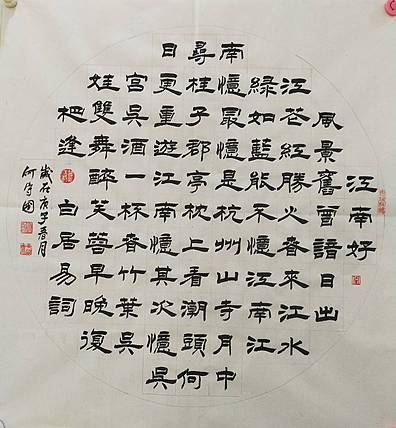 江南好
風景舊曾諳日出
江花紅勝火春來江水
綠如藍能不憶江南江
南憶最憶是杭州山寺月中
尋桂子郡亭枕上看潮頭何
日更重遊江南憶其次憶吳
宮吳酒一杯春竹葉吳
娃雙舞醉芙蓉早晚復
相逢 白居易詞
歲在庚子春月